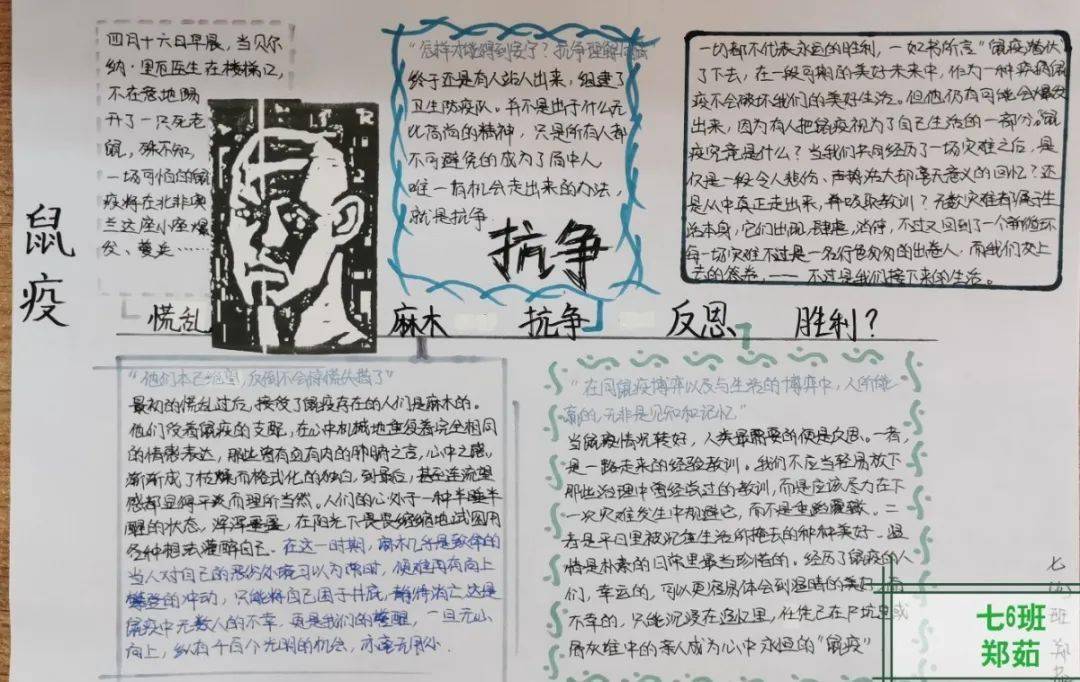 鼠疫
四月十六日早晨，当贝尔
纳·里厄医生在楼梯口，
不在意地踢
开了一只死老
鼠，殊不知，
一场可怕的鼠
疫将在北非奥
兰这座小座爆
发、蔓延……
终于还是有人站人出来，组建了
卫生防疫队。并不是出于什么无
比高尚的精神，只是所有人都
不可避免的成为了局中人
唯一有机会走出来的办法，
就是抗争
抗争
一切都不代表永远的胜利，一如书所言"鼠疫潜伏
了下去，在一段可期的美好未来中，作为一种疾病鼠
疫不会破坏我们的美好生活。但他仍有可能会爆发
出来，因为有人把鼠疫视为了自己生活的一部分。鼠
疫究竟是什么？当我们共同经历了一场灾难之后，是
仅是一段令人悲伤、声势浩大却毫无意义的回忆？还
是从中真正走出来，再吸取教训？无数灾难都属于生
活本身，它们出现，肆虐，消停，不过又回到了一个新循环
每一场灾难不过是一名行色匆匆的出卷人，而我们交上
去的答卷，—— 不过是我们接下来的生活。
慌乱 麻木 抗争 反思 胜利？
"他们本已绝望，反倒不会惊慌失措了"
最初的慌乱过后，接受了鼠疫存在的人们是麻木的。
他们受着鼠疫的支配，在心中机械地重复着完全相同
的情感表达，那些曾有血有肉的肺腑之言，心中之感，
渐渐成了枯燥而格式化的独白，到最后，甚至连流望
感都显得平淡而理所当然。人们的心处于一种半睡半
醒的状态，浑浑噩噩，在阳光下畏畏缩缩地试图用
各种想法灌醉自己。在这一时期，麻木几乎是致命的
当人对自己的恶劣环境习以为常时，便难再有向上
攀登的冲动，只能将自己困于井底，静待消亡。这是
鼠疫中无数人的不幸，更是我们的警醒，一旦无心
向上，纵有千百个光明的机会，亦毫无用处.
"在同鼠疫博弈以及与生活的博弈中，人所能
赢的，无非是见知和记忆"
当鼠疫情况转好，人类最需要的便是反思。一者，
是一路走来的经验教训。我们不应当轻易放下
那些治理中曾经尝过的教训，而是应该尽力在下
一次灾难发生中规避它，而不是重蹈覆辙。二
者是平日里被沉重生活所掩去的种种美好。温
情是朴素的日常里最当珍惜的。经历了鼠疫的人
们，幸运的，可以更容易体会到温情的美好，而
不幸的，只能沉浸在追忆里，任凭已在尸坑里或
居灰堆中的亲人成为心中永恒的"鼠疫"
七6班
郑茹